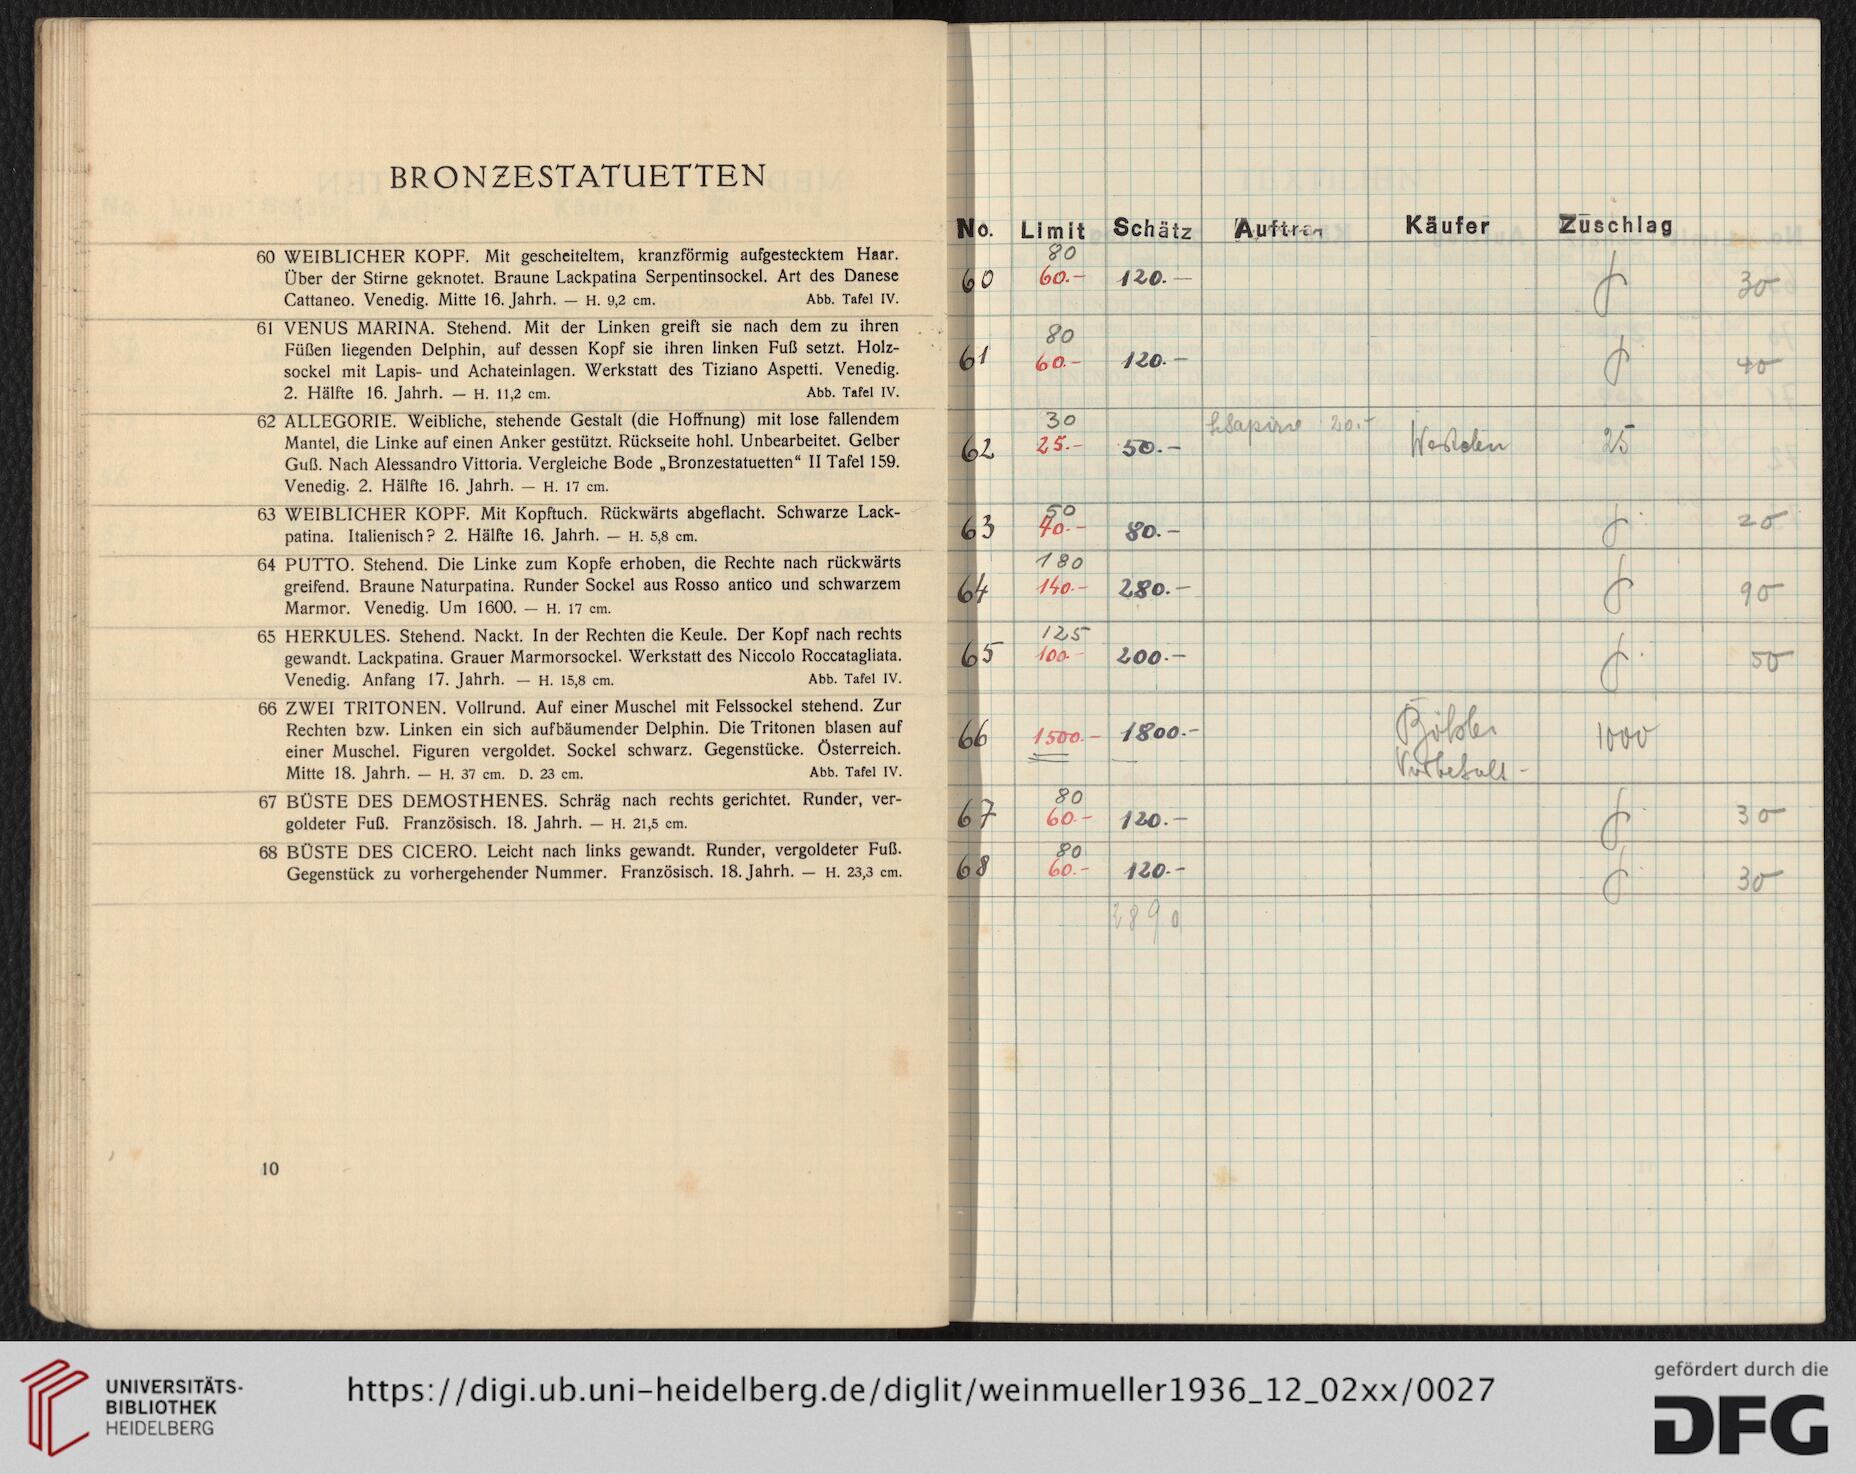 BRONZESTATUETTEN
60 WEIBLICHER KOPF. Mit gescheiteltem, kranzförmig aufgestecktem Haar.
Über der Stirne geknotet. Braune Lackpatina Serpentinsockel. Art des Danese
Cattaneo. Venedig. Mitte 16. Jahrh. — H. 9,2 cm. Abb. Tafel IV.
61 VENUS MARINA. Stehend. Mit der Linken greift sie nach dem zu ihren
Füßen liegenden Delphin, auf dessen Kopf sie ihren linken Fuß setzt. Holz-
sockel mit Lapis- und Achateinlagen. Werkstatt des Tiziano Aspetti. Venedig.
2. Hälfte 16. Jahrh. — H. 11,2 cm. Abb. Tafel IV.
62 ALLEGORIE. Weibliche, stehende Gestalt (die Hoffnung) mit lose fallendem
Mantel, die Linke auf einen Anker gestützt. Rückseite hohl. Unbearbeitet. Gelber
Guß. Nach Alessandro Vittoria. Vergleiche Bode „Bronzestatuetten“ II Tafel 159.
Venedig. 2. Hälfte 16. Jahrh. — H. 17 cm.
63 WEIBLICHER KOPF. Mit Kopftuch. Rückwärts abgeflacht. Schwarze Lack-
patina. Italienisch? 2. Hälfte 16. Jahrh. — H. 5,8 cm.
64 PUTTO. Stehend. Die Linke zum Kopfe erhoben, die Rechte nach rückwärts
greifend. Braune Naturpatina. Runder Sockel aus Rosso antico und schwarzem
Marmor. Venedig. Um 1600. — H. 17 cm.
65 HERKULES. Stehend. Nackt. In der Rechten die Keule. Der Kopf nach rechts
gewandt. Lackpatina. Grauer Marmorsockel. Werkstatt des Niccolo Roccatagliata.
Venedig. Anfang 17. Jahrh. — H. 15,8 cm. Abb. Tafel IV.
66 ZWEI TRITONEN. Vollrund. Auf einer Muschel mit Felssockel stehend. Zur
Rechten bzw. Linken ein sich aufbäumender Delphin. Die Tritonen blasen auf
einer Muschel. Figuren vergoldet. Sockel schwarz. Gegenstücke. Österreich.
Mitte 18. Jahrh. — H. 37 cm. D. 23 cm. Abb. Tafel IV.
67 BÜSTE DES DEMOSTHENES. Schräg nach rechts gerichtet. Runder, ver-
goldeter Fuß. Französisch. 18. Jahrh. — H. 21,5 cm.
68 BÜSTE DES CICERO. Leicht nach links gewandt. Runder, vergoldeter Fuß.
Gegenstück zu vorhergehender Nummer. Französisch. 18. Jahrh. — H. 23,3 cm.
10
No. Limit Schätz Käufer Zuschlag
80
60 60.- 120.- 30
80
61 60.- 120.- 40
30 20.-
62 25.- 50.- 25
50
63 40.- 80.- 20
180
64 140.- 280.- 90
125
65 100.- 200.- 50
66 1500.- 1800.- 1000
Vorbehalt -
80
67 60.- 120.- 30
80
68 60.- 120.- 30
2890
UNIVERSITÄTS-
BIBLIOTHEK
HEIDELBERG
https://digi.ub.uni-heidelberg.de/diglit/weinmueller1936_12_02xx/0027
gefördert durch die
DFG